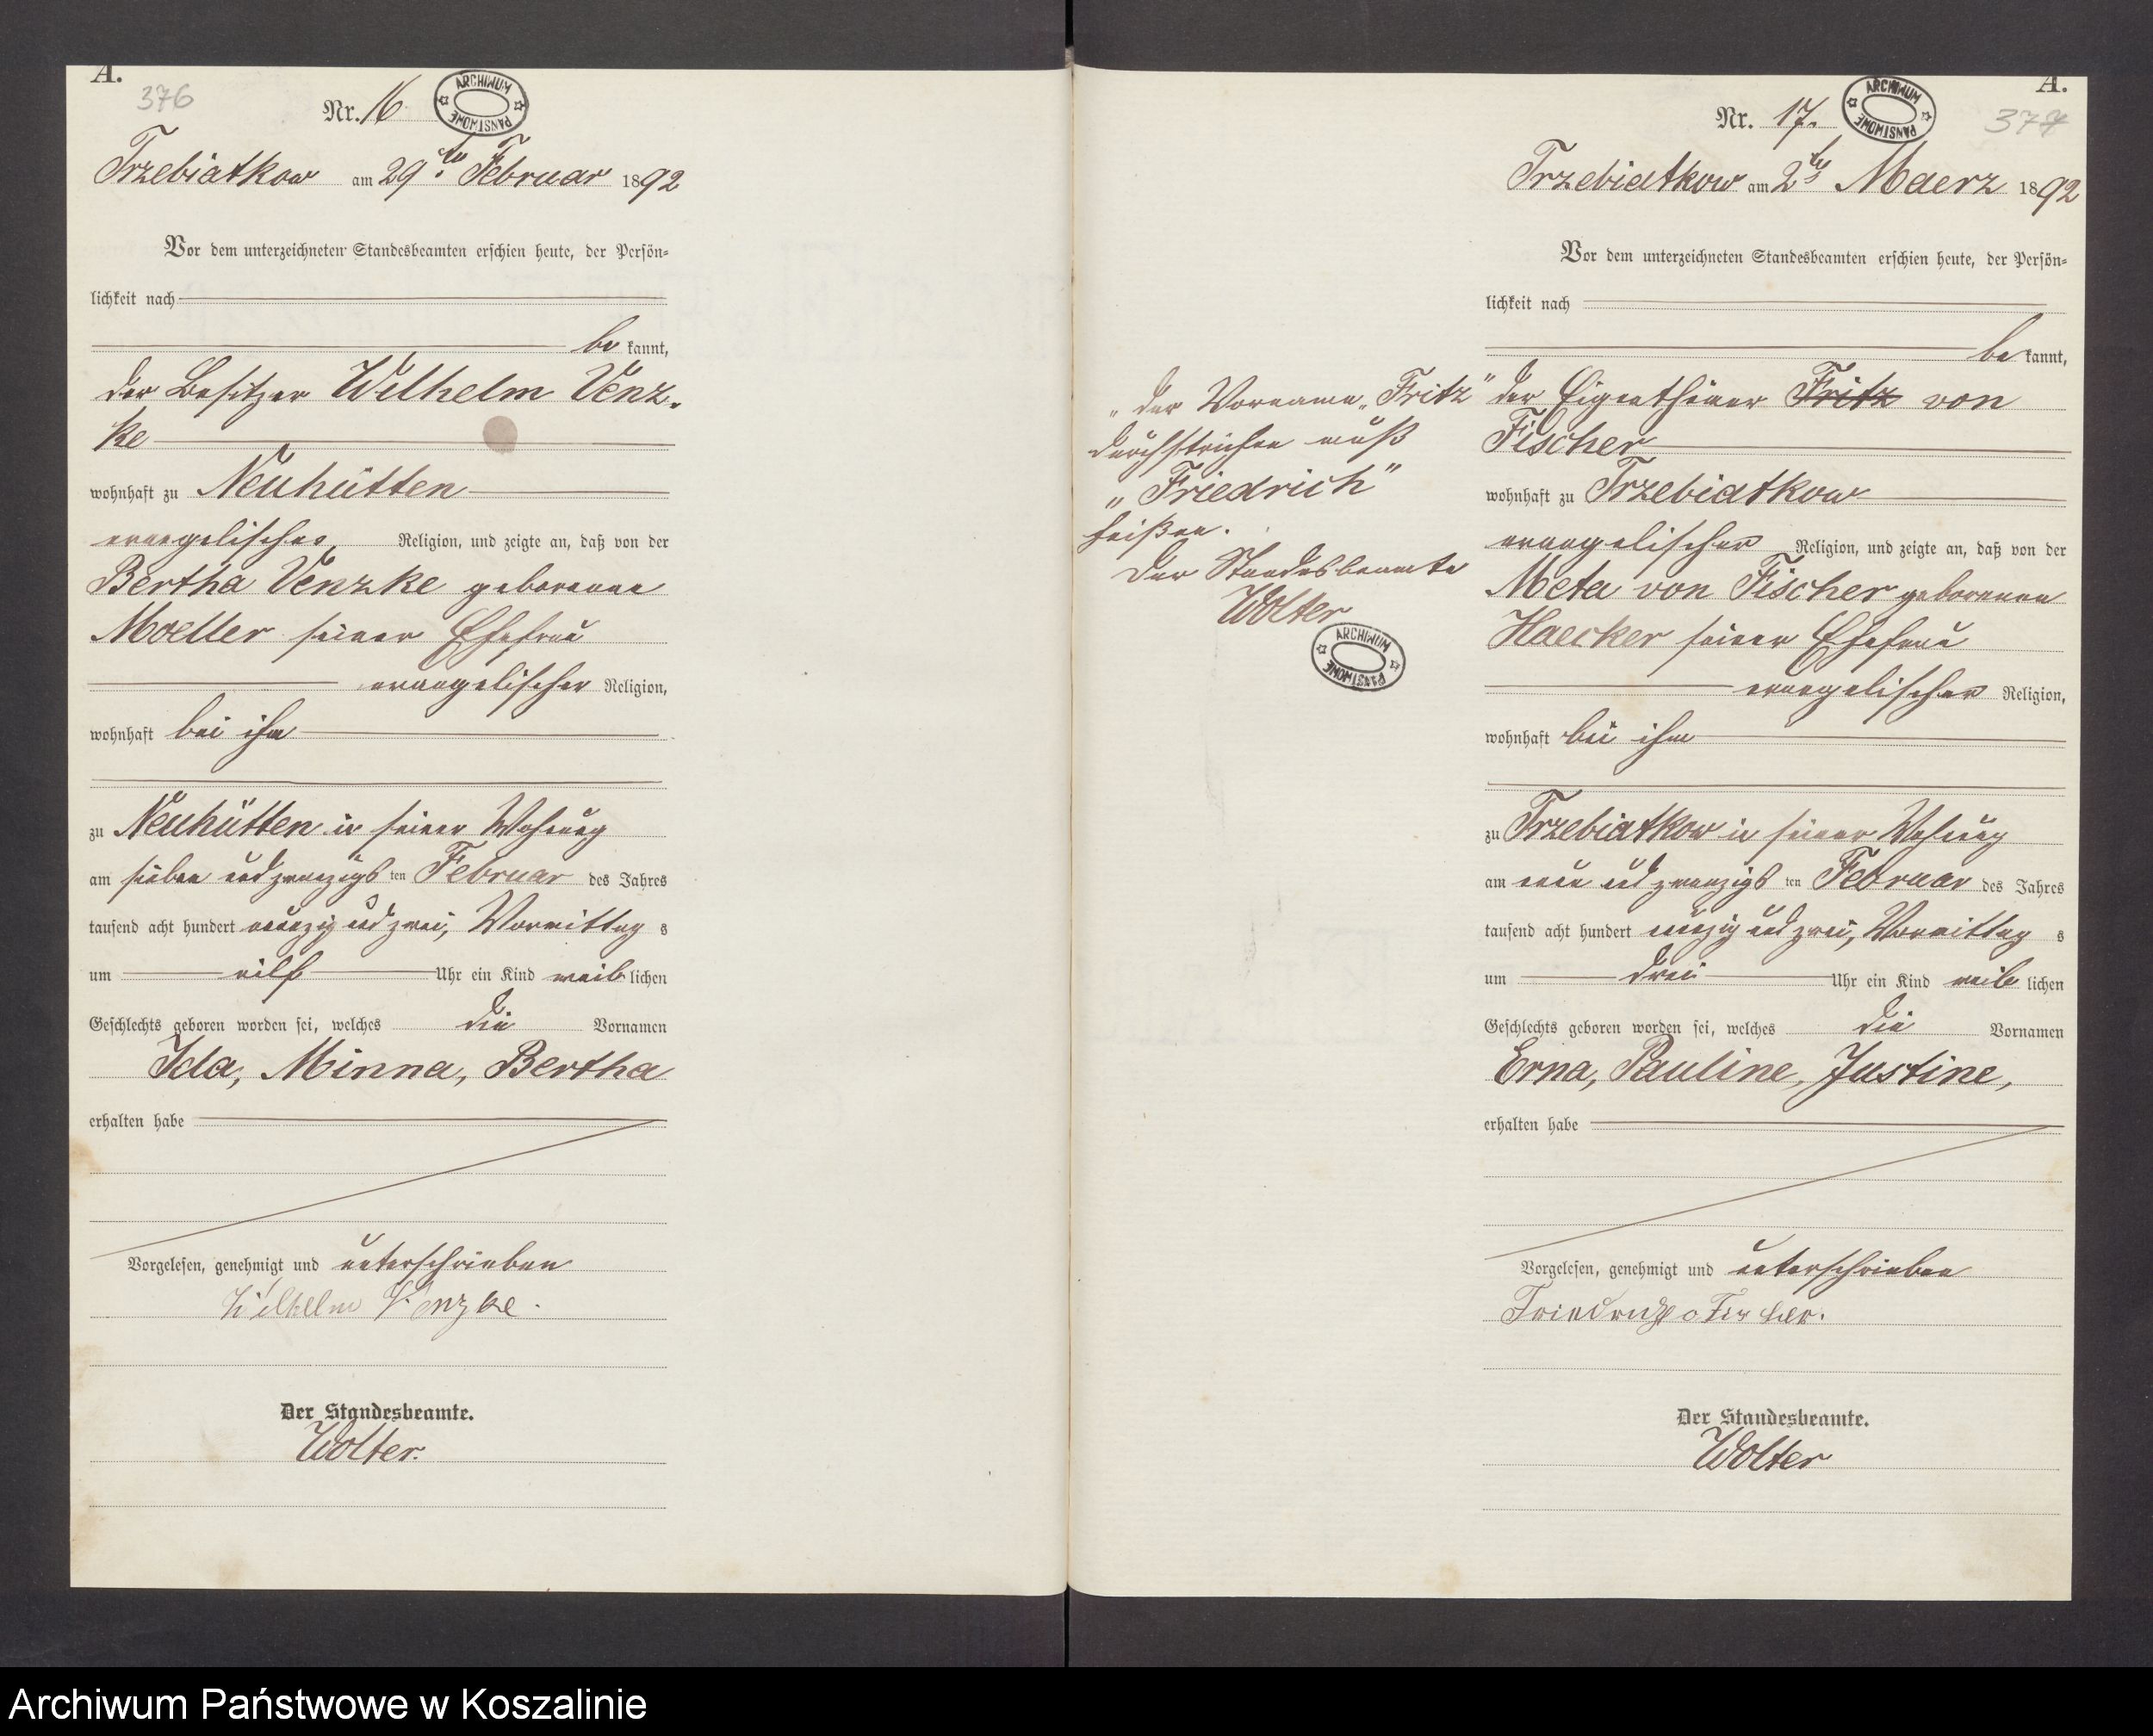 A.
376
Nr. 16
ARCHIWUM PAŃSTWOWE
Trzebiatkow am 29ten Februar 1892
Vor dem unterzeichneten Standesbeamten erschien heute, der Persön-
lichkeit nach
be kannt,
der Besitzer Wilhelm Venz-
ke
wohnhaft zu Neuhütten
evangelischer Religion, und zeigte an, daß von der
Bertha Venzke geborenen
Moeller seiner Ehefrau
evangelischer Religion,
wohnhaft bei ihm
zu Neuhütten in seiner Wohnung
am sieben und zwanzigs ten Februar des Jahres
tausend acht hundert neunzig und zwei, Vormittag s
um eilf Uhr ein Kind weib lichen
Geschlechts geboren worden sei, welches die Vornamen
Ida, Minna, Bertha
erhalten habe
Vorgelesen, genehmigt und unterschrieben
Wilhelm Venzke.
Der Standesbeamte.
Wolter.
A.
377
Nr. 17.
ARCHIWUM PAŃSTWOWE
Trzebiatkow am 2ten Maerz 1892
Vor dem unterzeichneten Standesbeamten erschien heute, der Persön-
lichkeit nach
be kannt,
der Eigenthümer Fritz von
Fischer
wohnhaft zu Trzebiatkow
evangelischer Religion, und zeigte an, daß von der
Meta von Fischer geborenen
Haecker seiner Ehefrau
evangelischer Religion,
wohnhaft bei ihm
zu Trzebiatkow in seiner Wohnung
am neun und zwanzigs ten Februar des Jahres
tausend acht hundert neunzig und zwei, Vormittag s
um drei Uhr ein Kind weib lichen
Geschlechts geboren worden sei, welches die Vornamen
Erna, Pauline, Justine,
erhalten habe
Vorgelesen, genehmigt und unterschrieben
Friedrich v Fischer.
Der Standesbeamte.
Wolter
„der Vorname „Fritz"
durchstrichen muß
„Friedrich"
heißen.
Der Standesbeamte
Wolter
ARCHIWUM PAŃSTWOWE
Archiwum Państwowe w Koszalinie